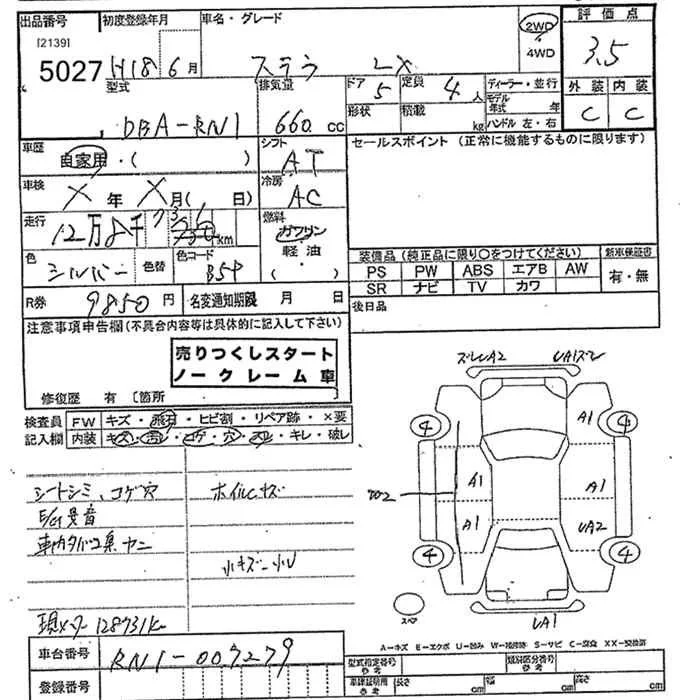 出品番号 初度登録年月 車名・グレード 2WD 4WD 評価点
[2139]
5027 H18 6月 ステラ LX 3.5
型式 排気量 ドア 5 定員 4人 ディーラー・並行 外装 内装
形状 積載 kg モデル年式 年
DBA-RN1 660cc ハンドル 左・右 C C
車歴 自家用・( ) シフト AT セールスポイント (正常に機能するものに限ります)
車検 X年 X月( 日) 冷房 AC
走行 12万8千731km 燃料 ガソリン 軽油
色 シルバー 色替 色コード B5P ( )
装備品 (純正品に限り○をつけてください) 新車保証書
PS PW ABS エアB AW 有・無
SR ナビ TV カワ
R券 9850円 名変通知期限 月 日 後日品
注意事項申告欄(不具合内容等は具体的に記入して下さい)
売りつくしスタート
ノークレーム車
修復歴 有 [箇所
検査員 記入欄 FW キズ・飛石・ヒビ割・リペア跡・×要
内装 キズ・汚レ・コゲ・穴・スレ・キレ・破レ
シートシミ、コゲ穴 ホイルキズ
E/G異音
車内タバコ臭 ヤニ
小キズ 小U
現メーター 128731km
ズレUA2 UA1ズレ
4 A1 4
A1 A1
A1 UA2
4 4
スペア UA1
A-キズ E-エクボ U-凹み W-補修跡 S-サビ C-腐食 XX-交換済
車台番号 RN1-007279
型式指定番号 参考 類別区分番号 参考
登録番号 車庫証明用 参考 長さ cm 幅 cm 高さ cm